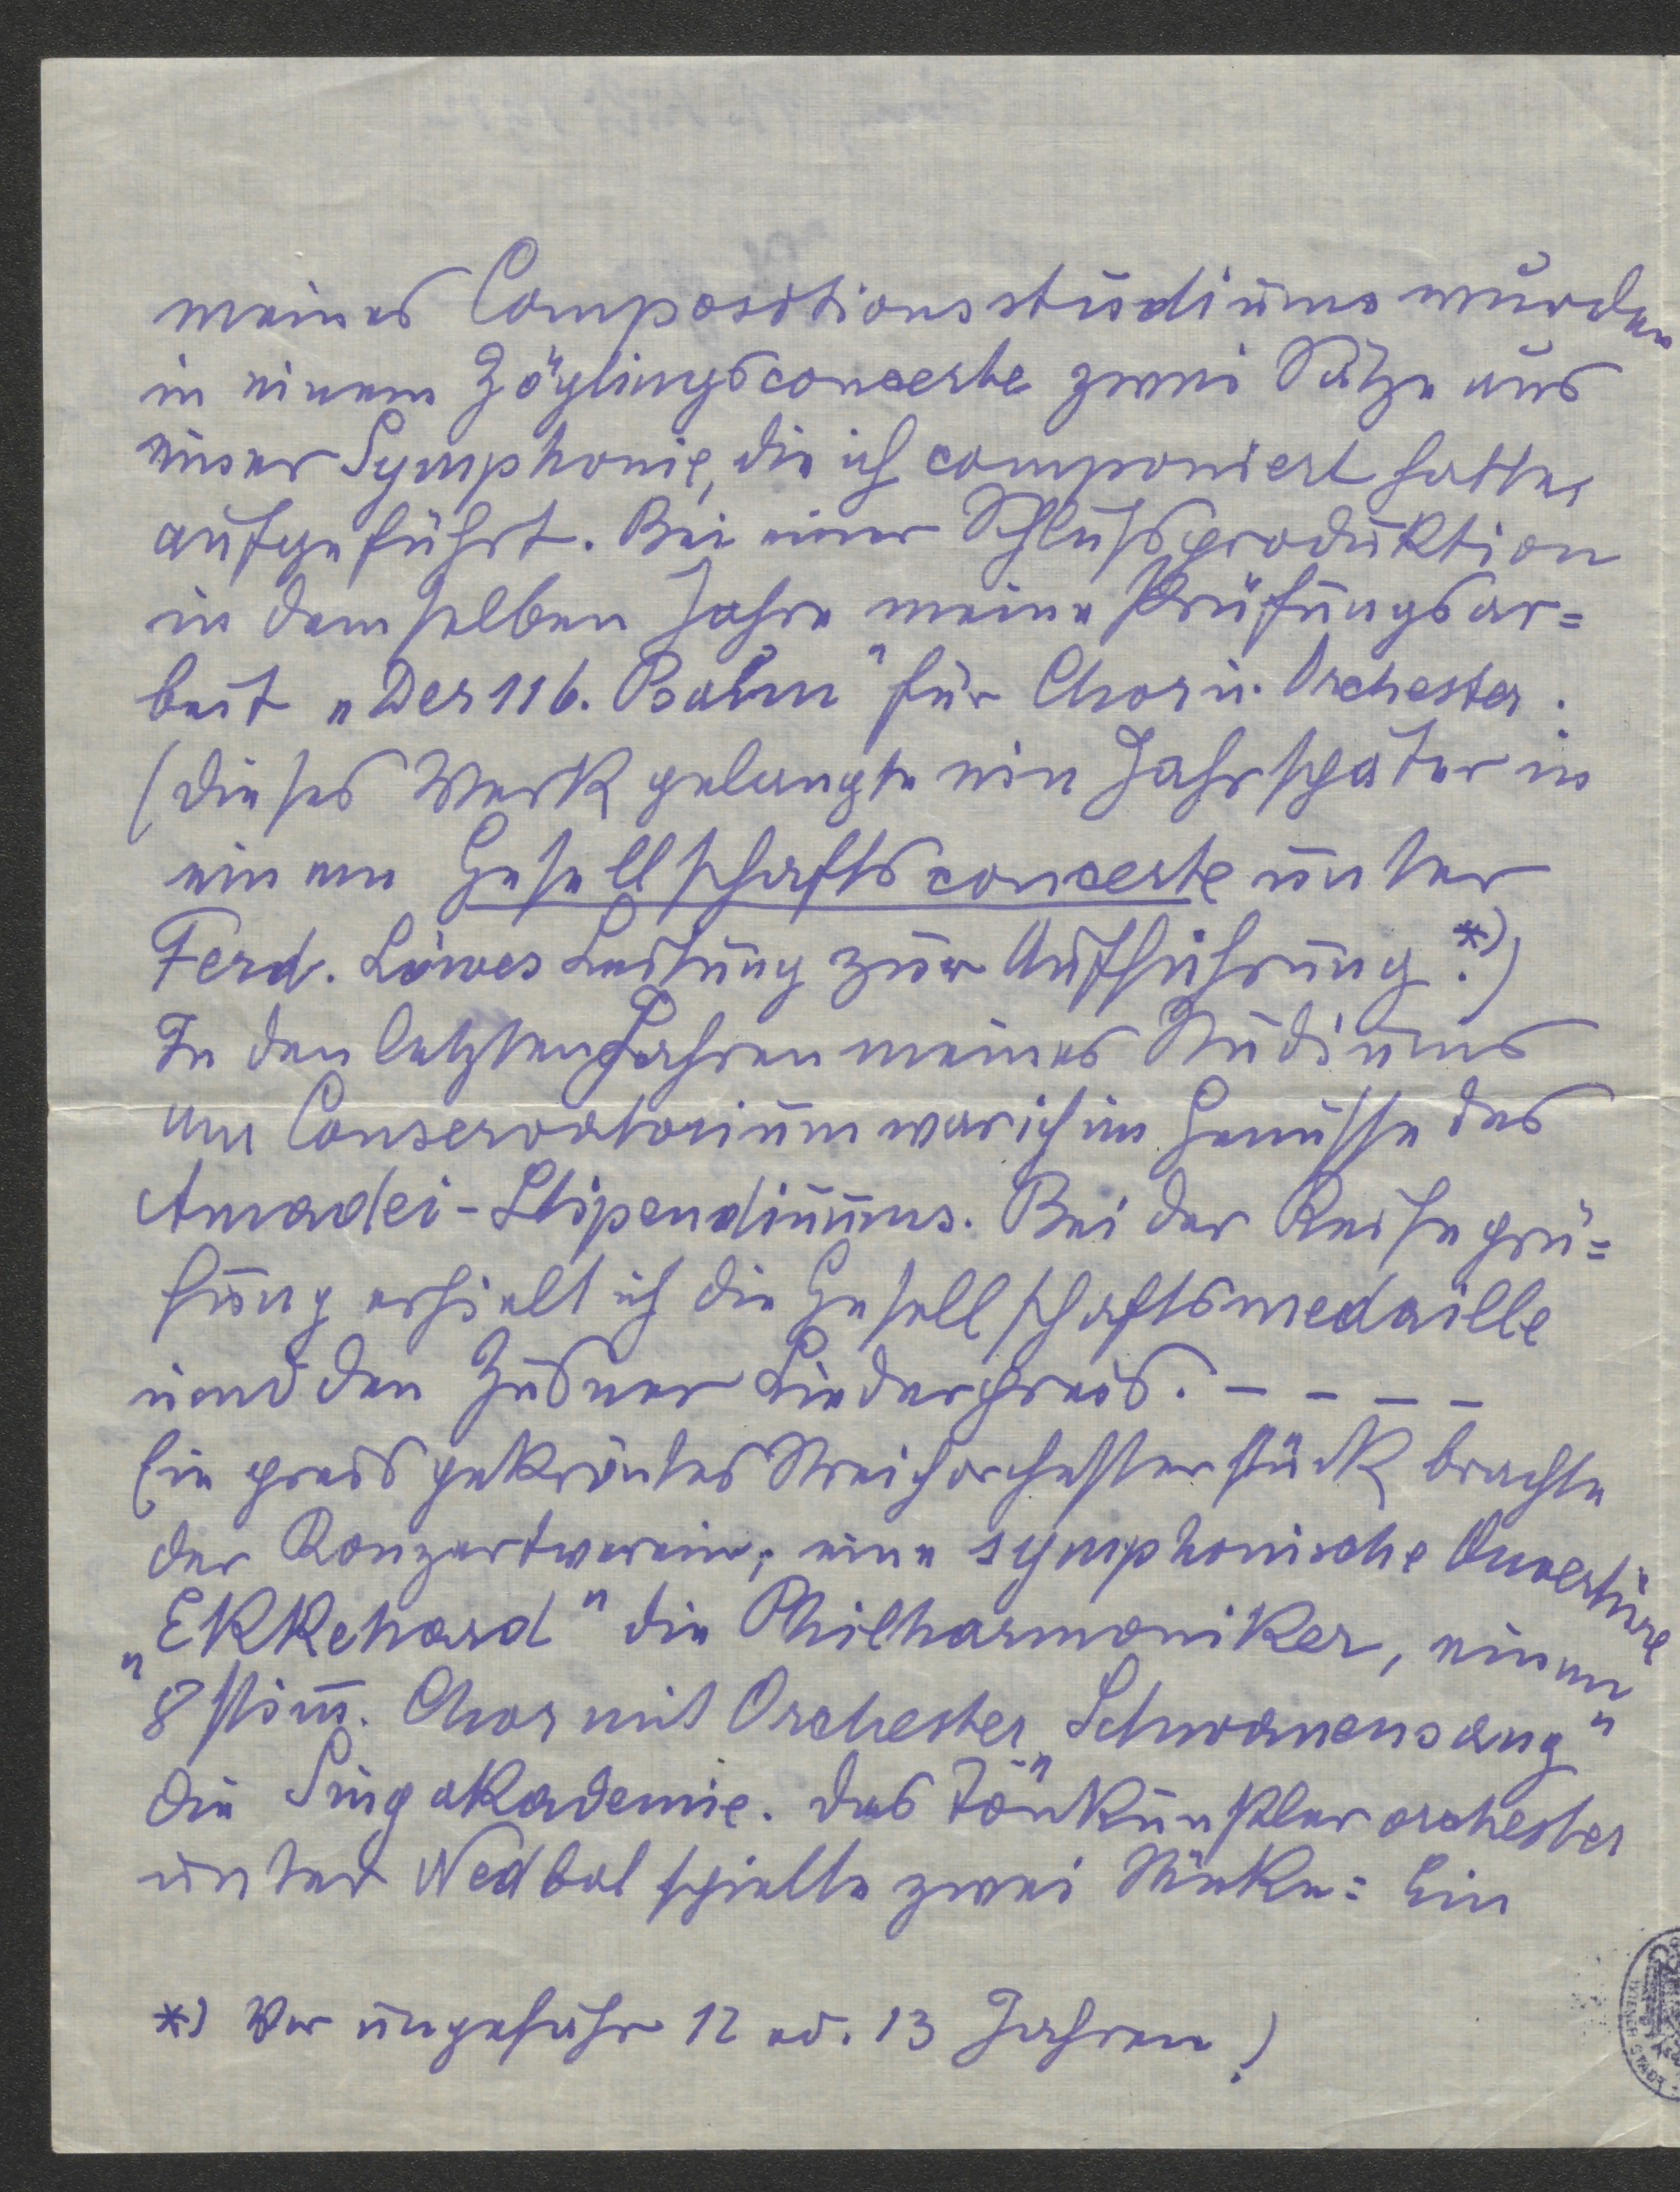 meines Compositionsstudiums wurden
in einem Zöglingsconcerte zwei Sätze aus
einer Symphonie, die ich componiert hatte,
aufgeführt. Bei einer Schlußproduktion
in demselben Jahre meine Prüfungsar=
beit „Der 116. Psalm" für Chor u. Orchester.
(Dieses Werk gelangte ein Jahr später in
einem Gesellschaftsconcerte unter
Ferd. Löwes Leitung zur Aufführung.*))
In den letzten Jahren meines Studiums
am Conservatorium war ich im Genusse des
Amadei-Stipendiums. Bei der Reifeprü=
fung erhielt ich die Gesellschaftsmedaille
und den Zusner Liederpreis. - - - - -
Ein preisgekröntes Streichorchesterstück brachte
der Konzertverein, eine symphonische Ouvertüre
„Ekkehard" die Philharmoniker, einen
8 stim̅. Chor mit Orchester „Schwanensang"
die Singakademie. Das Tonkünstlerorchester
unter Nedbal spielte zwei Stücke: Ein
*) Vor ungefähr 12 od. 13 Jahren!